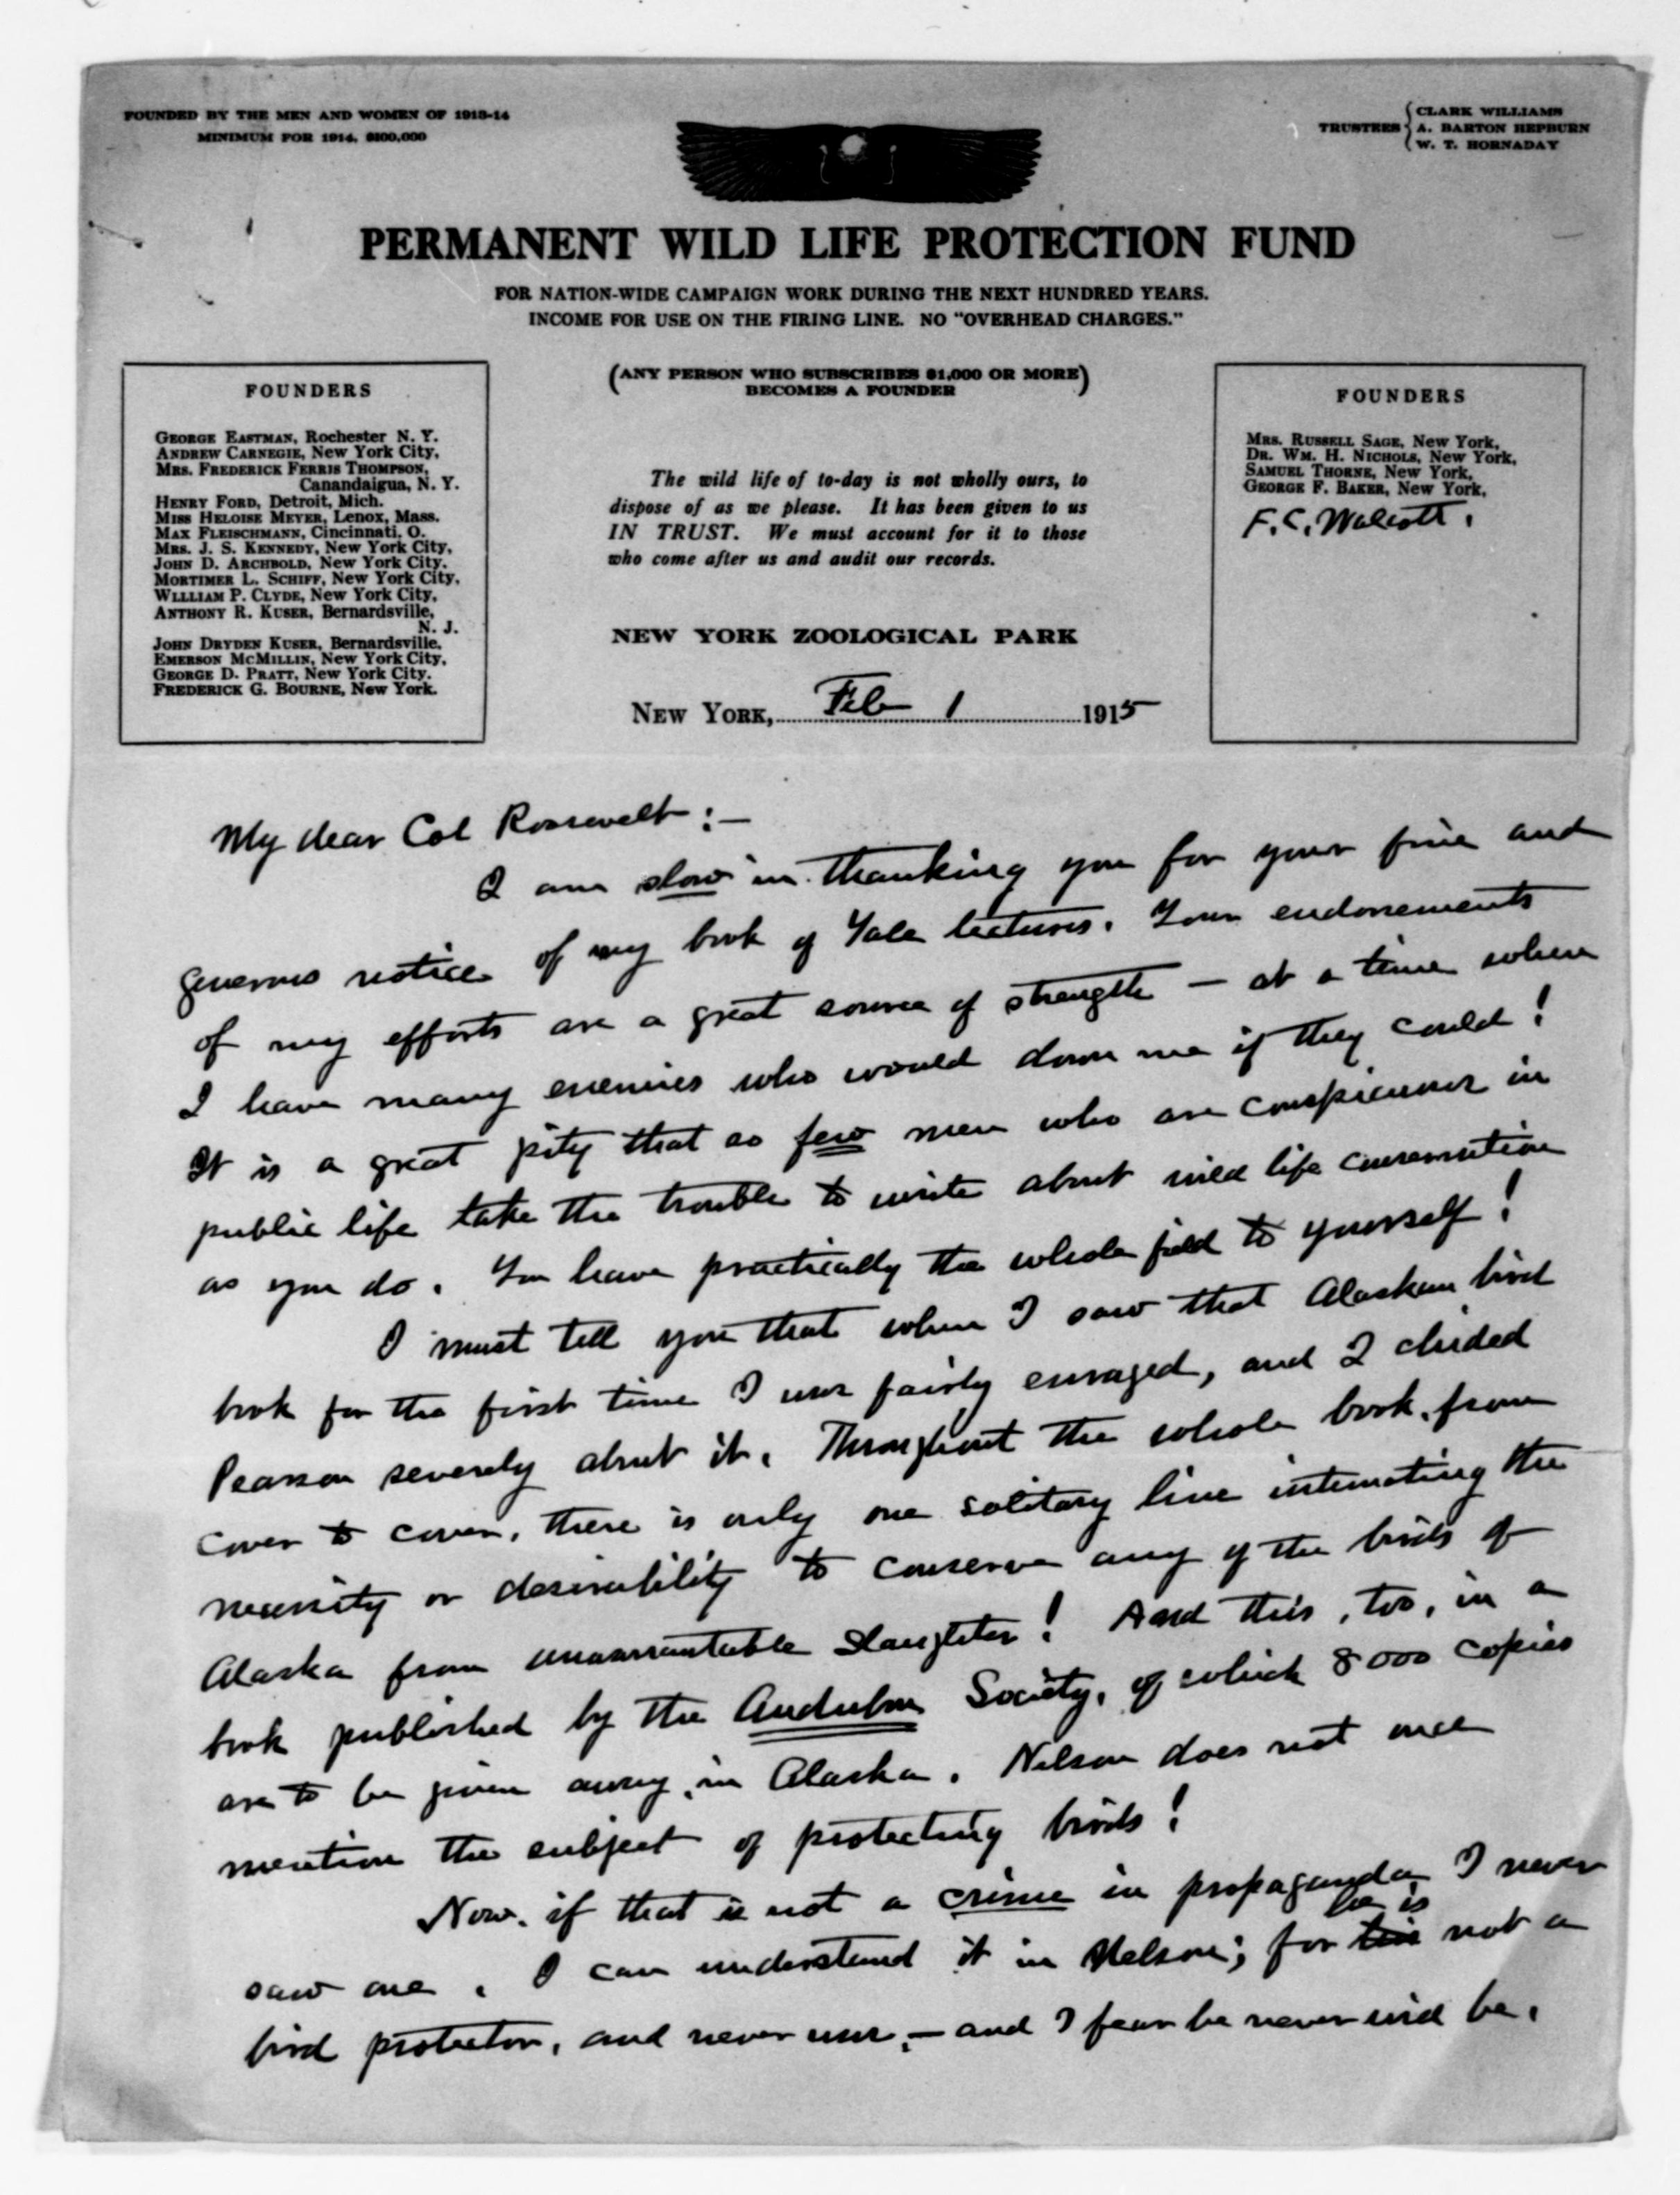 FOUNDED BY THE MEN AND WOMEN OF 1913-14
MINIMUM FOR 1914, $100,000
TRUSTEES
CLARK WILLIAMS
A. BARTON HEPBURN
W. T. HORNADAY
PERMANENT WILD LIFE PROTECTION FUND
FOR NATION-WIDE CAMPAIGN WORK DURING THE NEXT HUNDRED YEARS.
INCOME FOR USE ON THE FIRING LINE. NO "OVERHEAD CHARGES."
(ANY PERSON WHO SUBSCRIBES $1,000 OR MORE)
BECOMES A FOUNDER
FOUNDERS
GEORGE EASTMAN, Rochester N. Y.
ANDREW CARNEGIE, New York City,
MRS. FREDERICK FERRIS THOMPSON,
Canandaigua, N. Y.
HENRY FORD, Detroit, Mich.
MISS HELOISE MEYER, Lenox, Mass.
MAX FLEISCHMANN, Cincinnati, O.
MRS. J. S. KENNEDY, New York City,
JOHN D. ARCHBOLD, New York City.
MORTIMER L. SCHIFF, New York City,
WLLLIAM P. CLYDE, New York City,
ANTHONY R. KUSER, Bernardsville,
N. J.
JOHN DRYDEN KUSER, Bernardsville,
EMERSON MCMILLIN, New York City,
GEORGE D. PRATT, New York City.
FREDERICK G. BOURNE, New York.
The wild life of to-day is not wholly ours, to
dispose of as we please. It has been given to us
IN TRUST. We must account for it to those
who come after us and audit our records.
NEW YORK ZOOLOGICAL PARK
NEW YORK, Feb 1 1915
FOUNDERS
MRS. RUSSELL SAGE, New York,
DR. WM. H. NICHOLS, New York,
SAMUEL THORNE, New York,
GEORGE F. BAKER, New York,
F. C. Walcott.
My dear Col Roosevelt :—
I am slow in thanking you for your fine and
generous notice of my book of Yale lectures. Your endorsements
of my efforts are a great source of strength — at a time when
I have many enemies who would down me if they could!
It is a great pity that so few men who are conspicuous in
public life take the trouble to write about wild life conservation
as you do. You have practically the whole field to yourself!
I must tell you that when I saw that Alaskan bird
book for the first time I was fairly enraged, and I chided
Pearson severely about it. Throughout the whole book, from
cover to cover, there is only one solitary line intimating the
necessity or desirability to conserve any of the birds of
Alaska from unwarrantable slaughter! And this, too, in a
book published by the Audubon Society, of which 8000 copies
are to be given away in Alaska. Nelson does not once
mention the subject of protecting birds!
Now, if that is not a crime in propaganda I never
saw one. I can understand it in Nelson; for he is not a
bird protector, and never was, — and I fear he never will be.